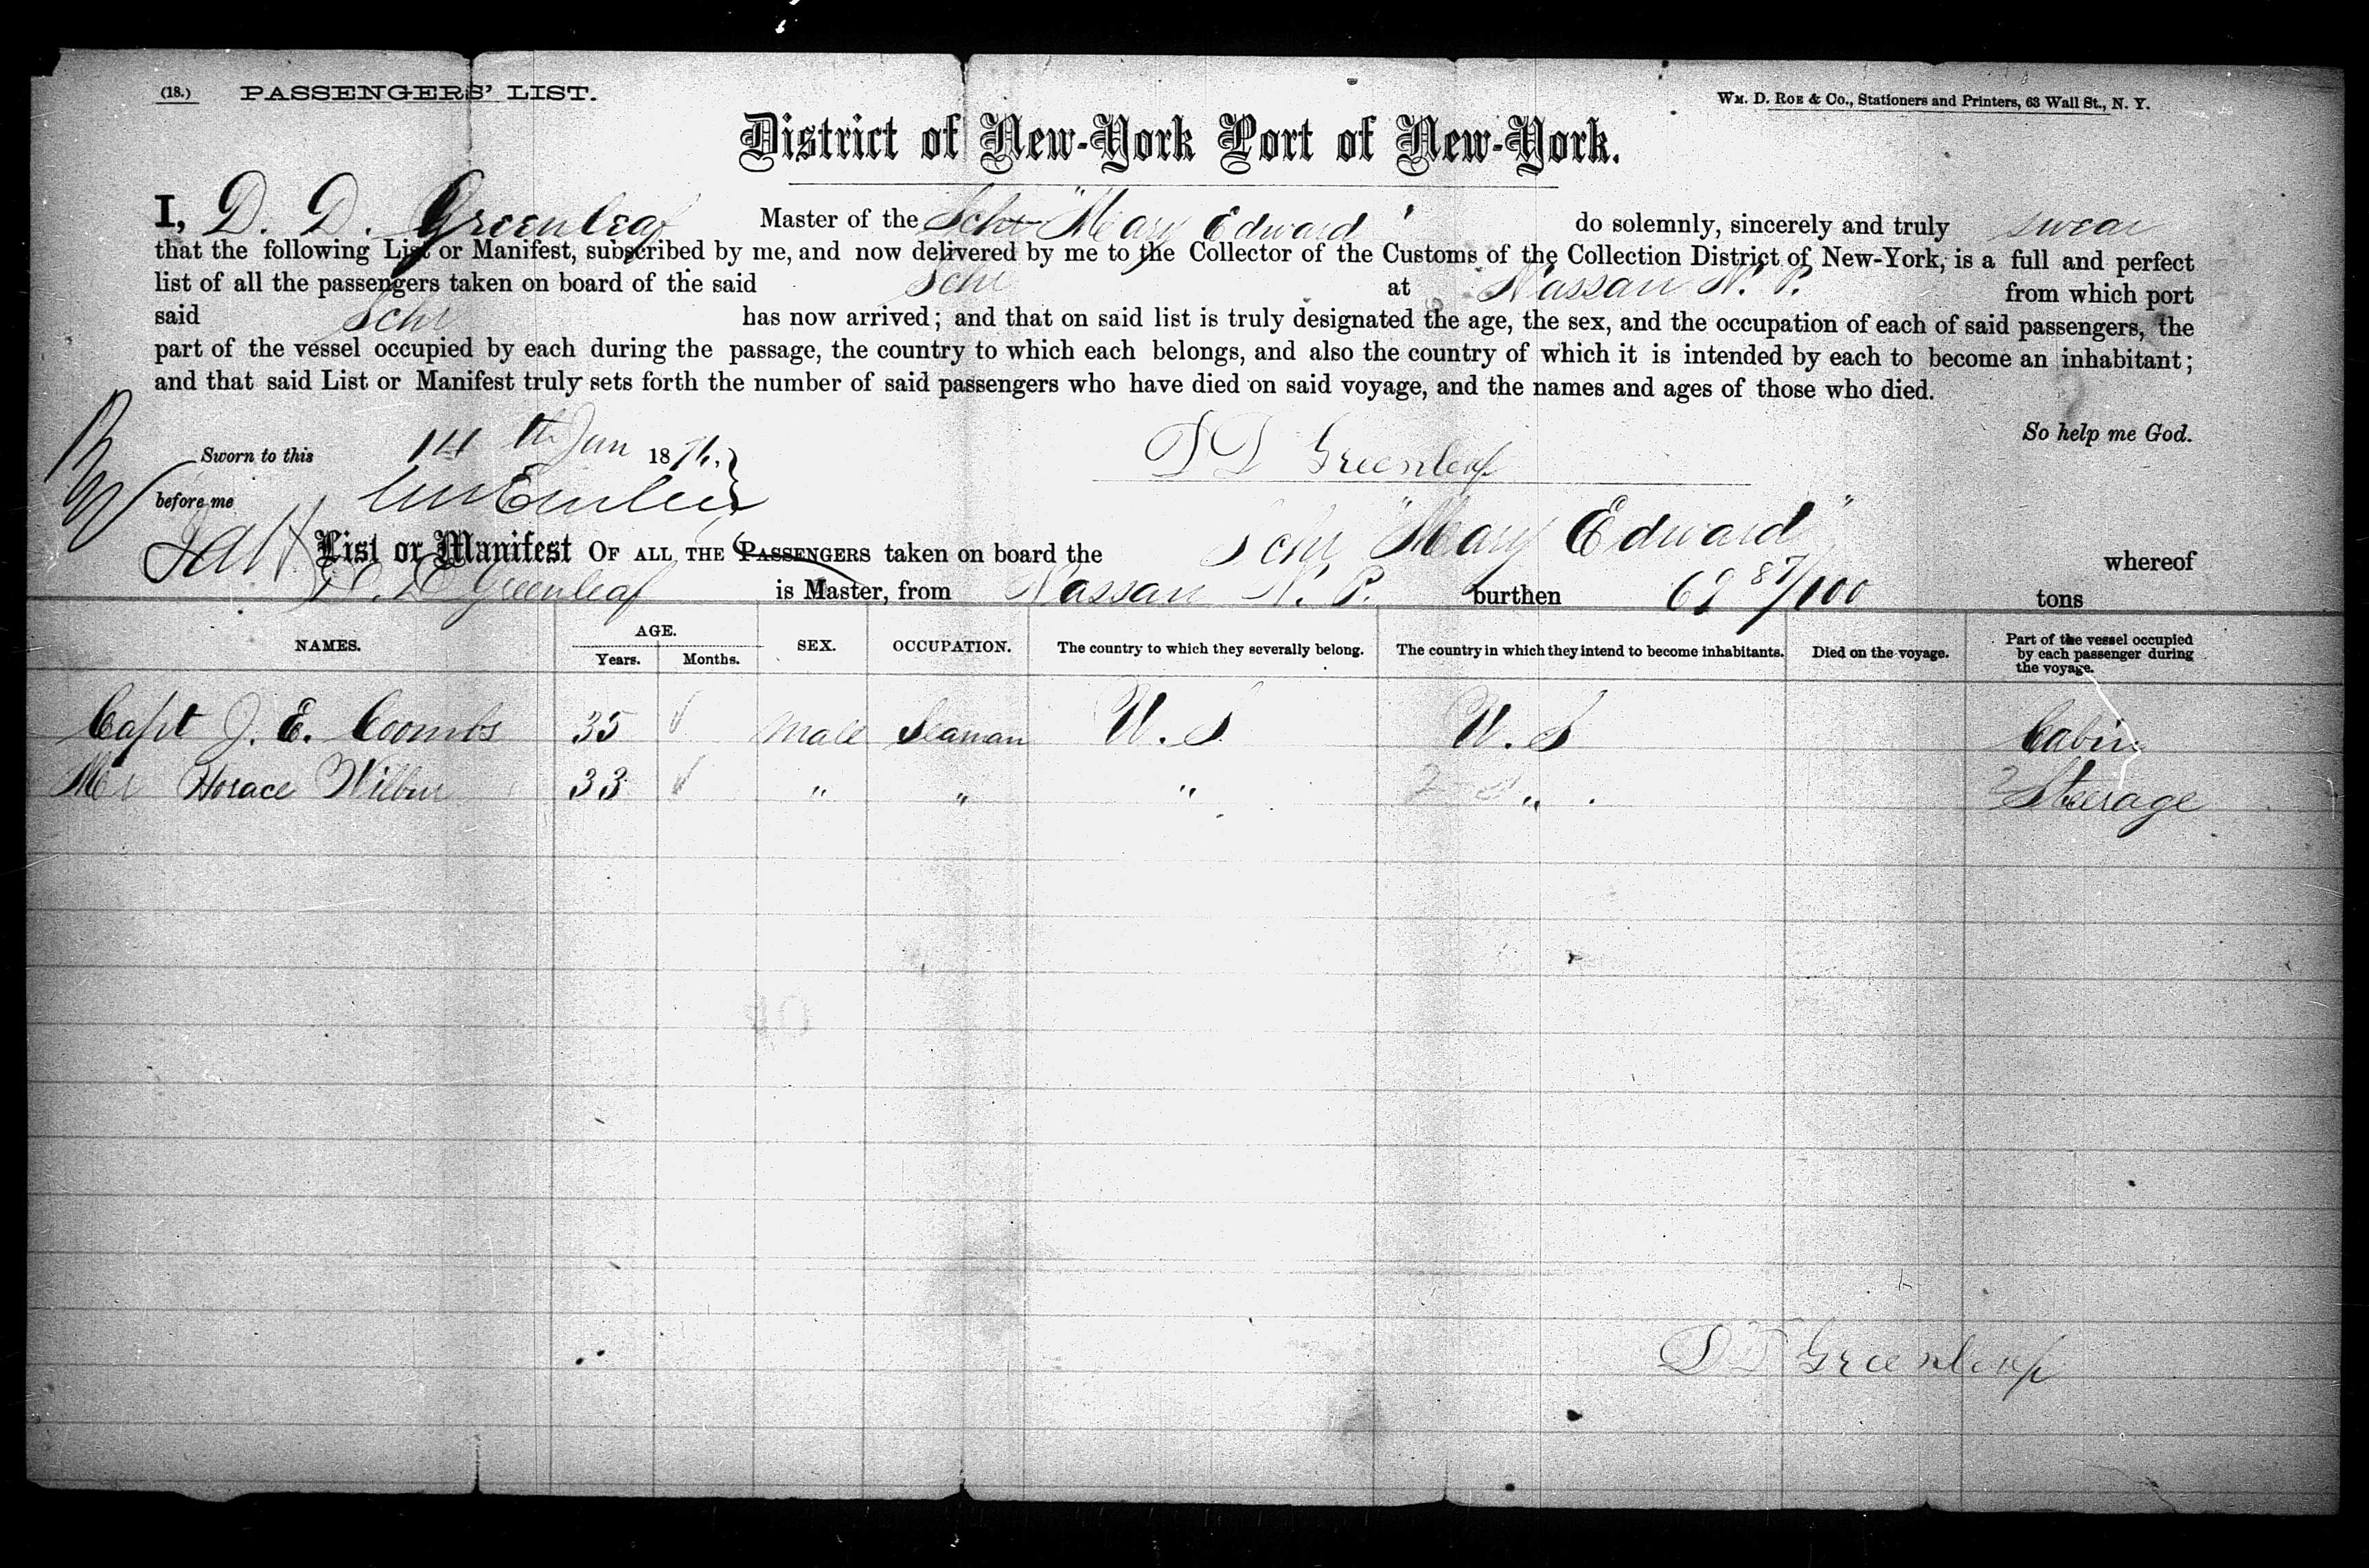 (18.) PASSENGERS' LIST.
Wm. D. Roe & Co., Stationers and Printers, 63 Wall St., N. Y.
District of New-York Port of New-York.
I, D. D. Greenleaf Master of the Schr "Mary Edward" do solemnly, sincerely and truly swear
that the following List or Manifest, subscribed by me, and now delivered by me to the Collector of the Customs of the Collection District of New-York, is a full and perfect
list of all the passengers taken on board of the said Schr at Nassau N. P. from which port
said Schr has now arrived; and that on said list is truly designated the age, the sex, and the occupation of each of said passengers, the
part of the vessel occupied by each during the passage, the country to which each belongs, and also the country of which it is intended by each to become an inhabitant;
and that said List or Manifest truly sets forth the number of said passengers who have died on said voyage, and the names and ages of those who died.
So help me God.
Sworn to this 14th Jan 1876.
D D Greenleaf
before me
List or Manifest OF ALL THE PASSENGERS taken on board the Schr "Mary Edward" whereof
D. D. Greenleaf is Master, from Nassau N. P. burthen 69 87/100 tons
NAMES. AGE. Years. Months. SEX. OCCUPATION. The country to which they severally belong. The country in which they intend to become inhabitants. Died on the voyage. Part of the vessel occupied by each passenger during the voyage.
Capt J. E. Coombs 35 ✓ Male Seaman U. S U. S Cabin
Mr Horace Wilbur 33 ✓ " " " " Steerage
D D Greenleaf